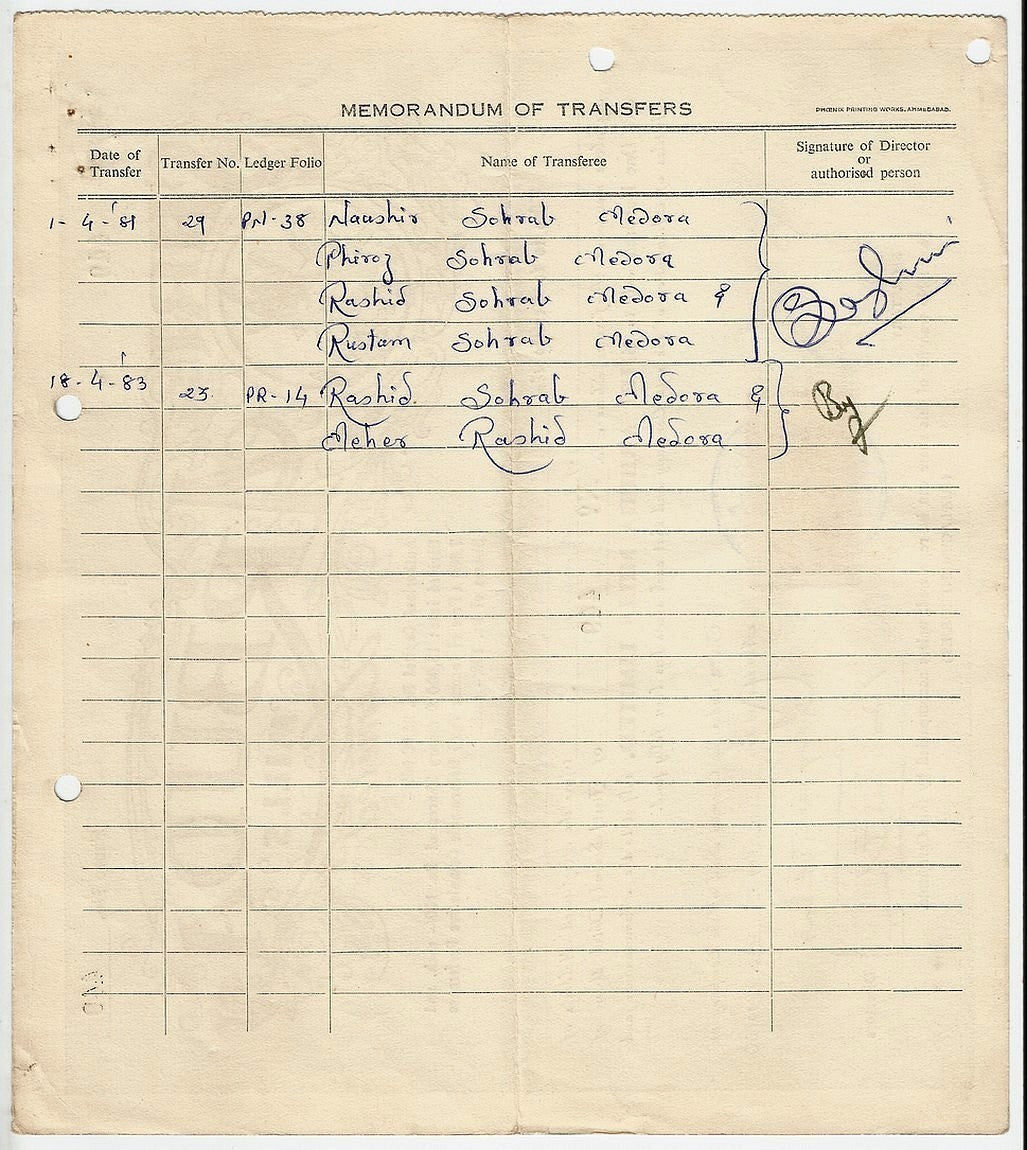 MEMORANDUM OF TRANSFERS
PHOENIX PRINTING WORKS, AHMEDABAD.
Date of Transfer Transfer No. Ledger Folio Name of Transferee Signature of Director or authorised person
1-4-81 29 PN-38 Naushir Sohrab Medora
Phiroz Sohrab Medora
Rashid Sohrab Medora &
Rustam Sohrab Medora
18-4-83 25. PR-14 Rashid. Sohrab Medora &
Meher Rashid Medora